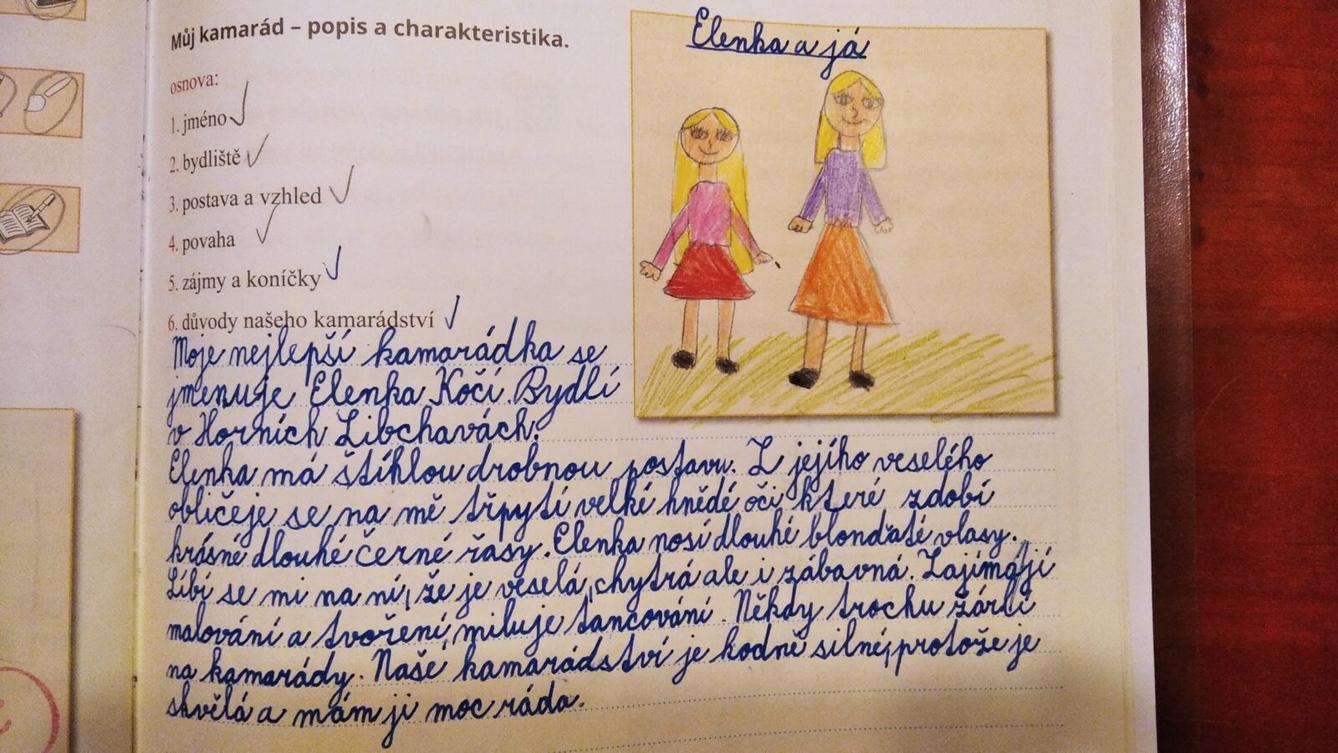 Můj kamarád – popis a charakteristika.
Elenka a já
osnova:
1. jméno
2. bydliště
3. postava a vzhled
4. povaha
5. zájmy a koníčky
6. důvody našeho kamarádství
Moje nejlepší kamarádka se
jmenuje Elenka Kočí. Bydlí
v Horních Libchavách.
Elenka má štíhlou drobnou postavu. Z jejího veselého
obličeje se na mě třpytí velké hnědé oči které zdobí
krásné dlouhé černé řasy. Elenka nosí dlouhé blonďaté vlasy.
Líbí se mi na ní, že je veselá, chytrá ale i zábavná. Zajímá ji
malování a tvoření, miluje tancování. Někdy trochu žárlí
na kamarády. Naše kamarádství je hodně silné, protože je
skvělá a mám ji moc ráda.